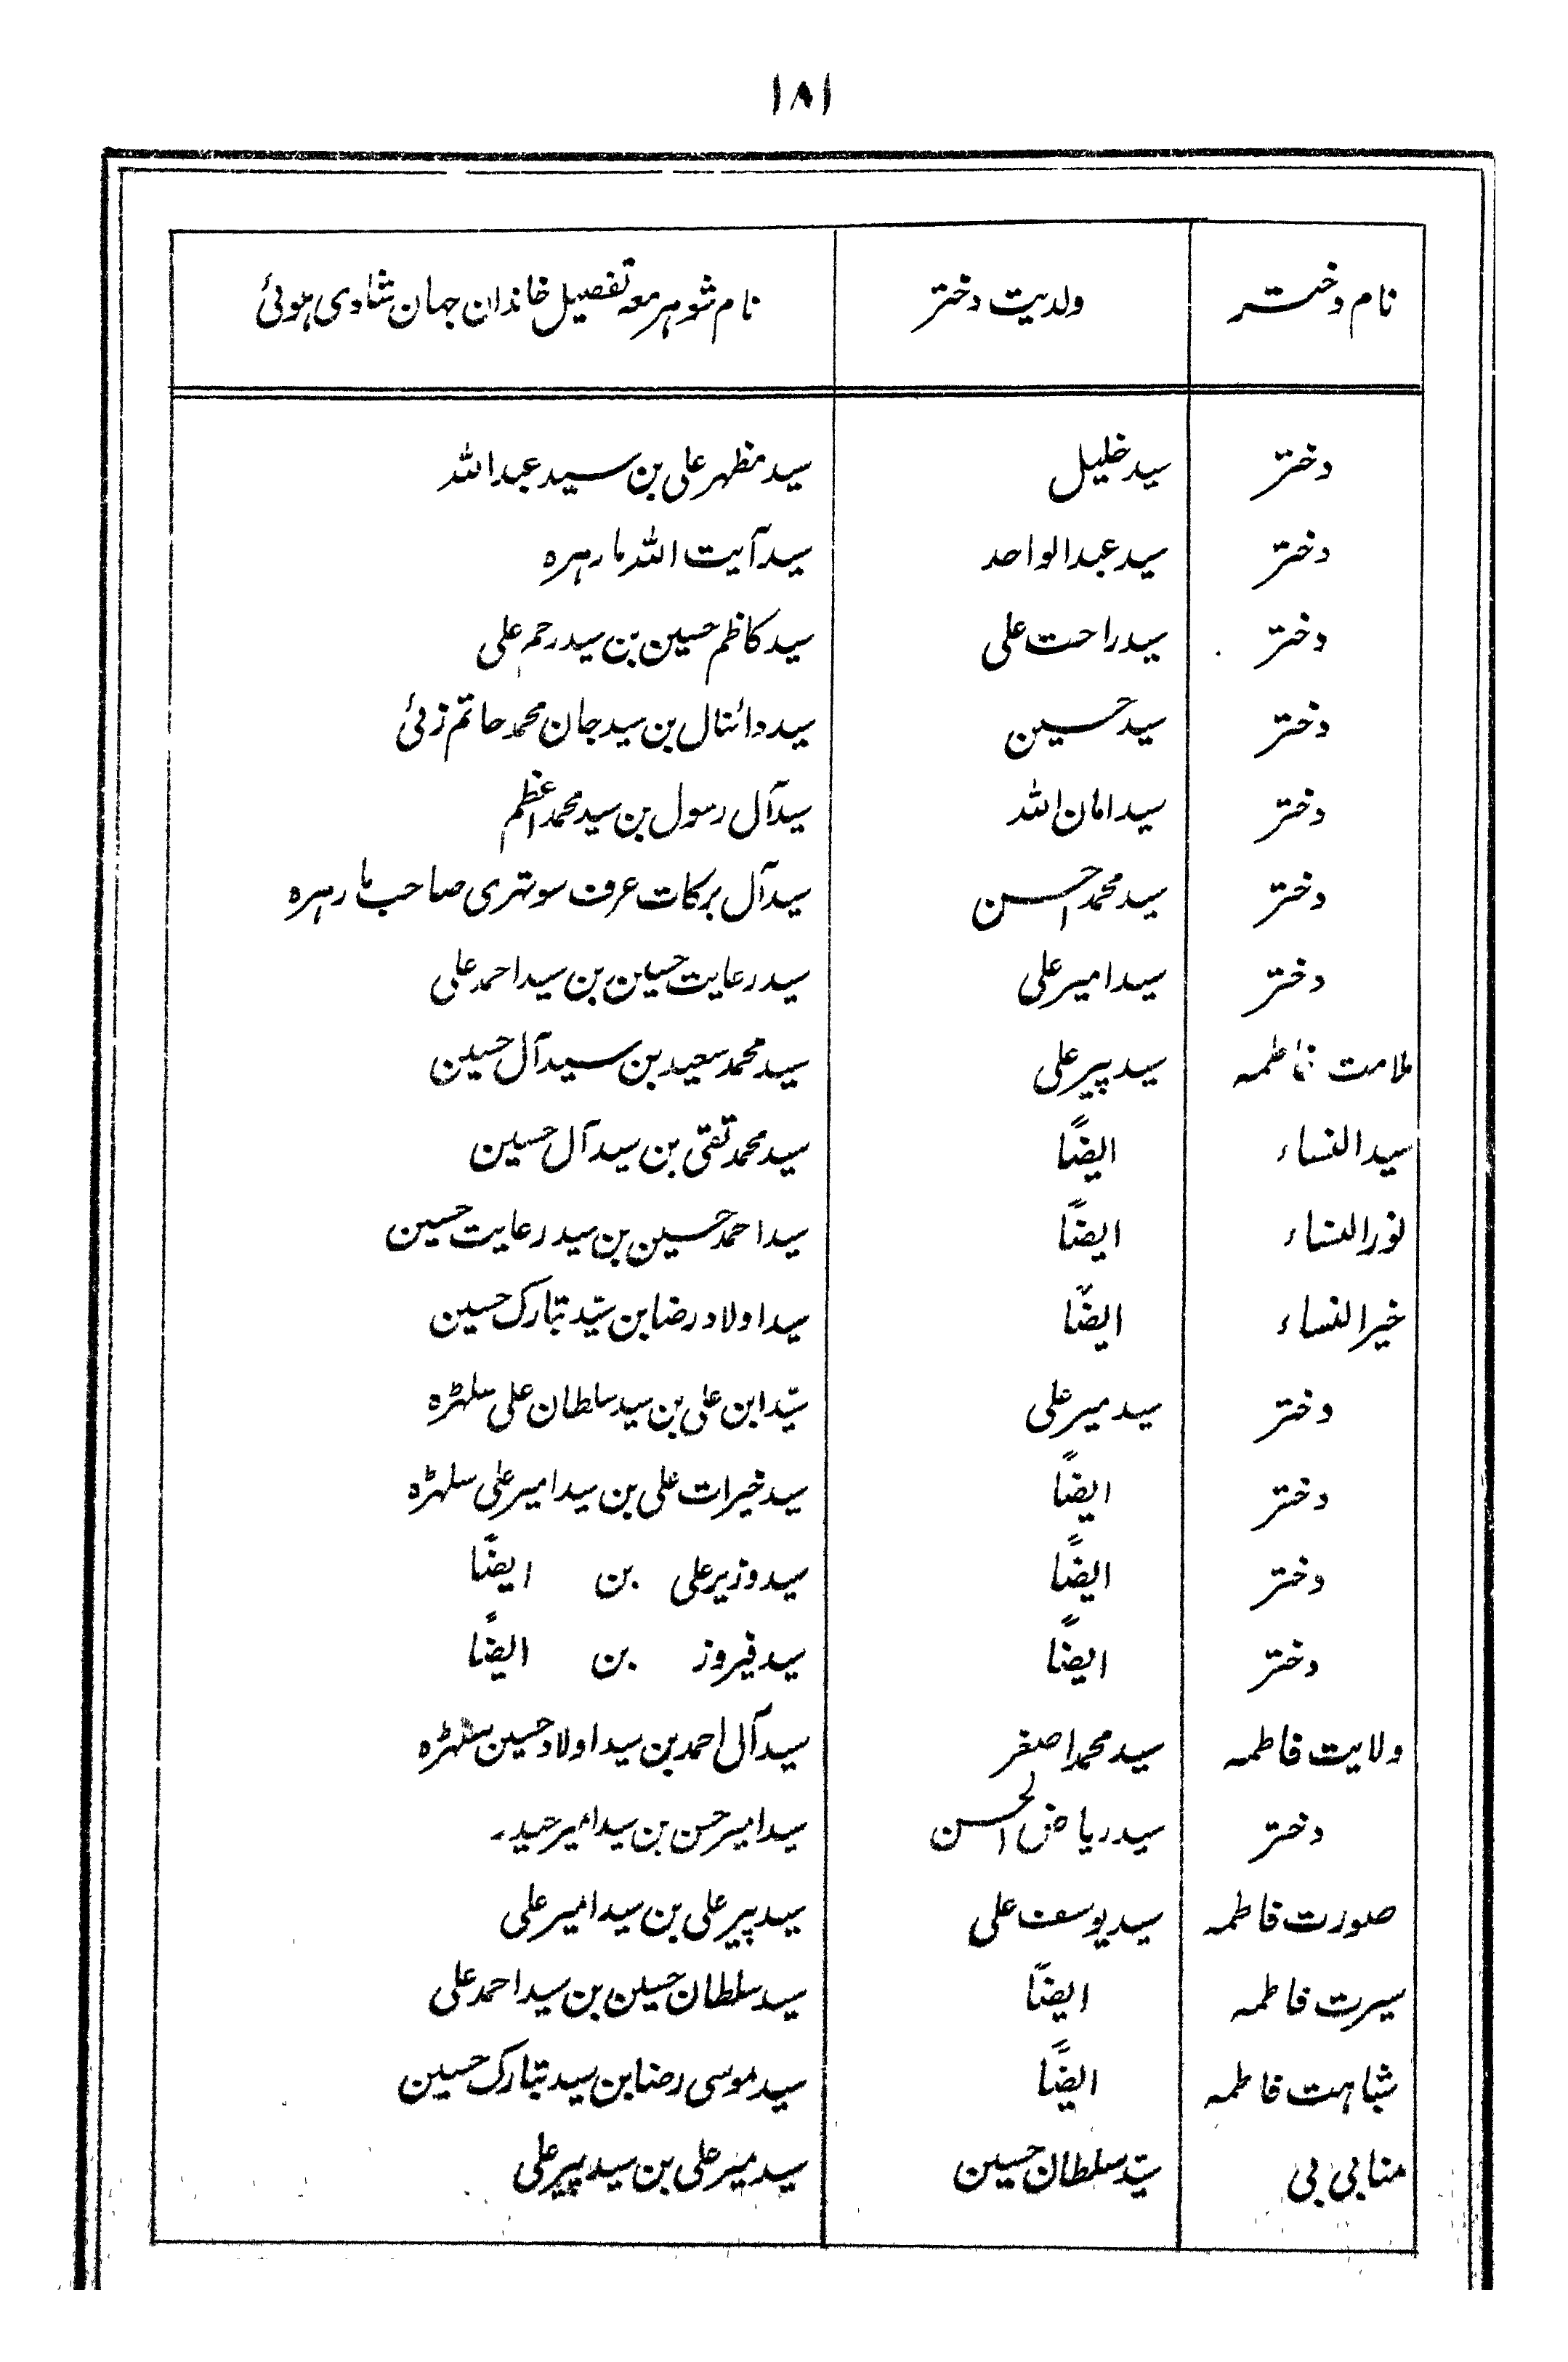 ۱۸۱
نام دختر ولدیت دختر نام شوہر معہ تفصیل خاندان جہان شادی ہوئی
دختر سید خلیل سید مظہر علی بن سید عبد اللہ
دختر سید عبدالواحد سید آیت اللہ مارہرہ
دختر سید راحت علی سید کاظم حسین بن سید رحم علی
دختر سید حسین سید دائنال بن سید جان محمد حاتم زئی
دختر سید امان اللہ سید آل رسول بن سید محمد اعظم
دختر سید محمد احسن سید آل برکات عرف سوتہری صاحب مارہرہ
دختر سید امیر علی سید رعایت حسین بن سید احمد علی
ملامت فاطمہ سید پیر علی سید محمد سعید بن سید آل حسین
سید النساء ایضاً سید محمد تقی بن سید آل حسین
نور النساء ایضاً سید احمد حسین بن سید رعایت حسین
خیر النساء ایضاً سید اولاد رضا بن سید تبارک حسین
دختر سید میر علی سید ابن علی بن سید سلطان علی سلہڑہ
دختر ایضاً سید خیرات علی بن سید امیر علی سلہڑہ
دختر ایضاً سید وزیر علی بن ایضاً
دختر ایضاً سید فیروز بن ایضاً
ولایت فاطمہ سید محمد اصغر سید آل احمد بن سید اولاد حسین سلہڑہ
دختر سید ریاض الحسن سید امیر حسن بن سید امیر حیدر
صورت فاطمہ سید یوسف علی سید پیر علی بن سید امیر علی
سیرت فاطمہ ایضاً سید سلطان حسین بن سید احمد علی
شباہت فاطمہ ایضاً سید موسی رضا بن سید تبارک حسین
منا بی بی سید سلطان حسین سید میر علی بن سید پیر علی